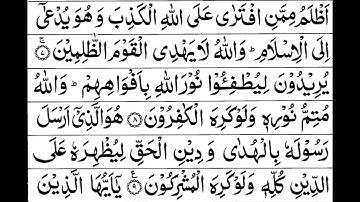 اَظْلَمُ مِمَّنِ افْتَرٰى عَلَى اللّٰهِ الْكَذِبَ وَ هُوَ يُدْعٰۤى
اِلَى الْاِسْلَامِ ؕ وَ اللّٰهُ لَا يَهْدِى الْقَوْمَ الظّٰلِمِيْنَ ۷
يُرِيْدُوْنَ لِيُطْفِـُٔوْا نُوْرَ اللّٰهِ بِاَفْوَاهِهِمْ ؕ وَ اللّٰهُ
مُتِمُّ نُوْرِهٖ وَ لَوْ كَرِهَ الْكٰفِرُوْنَ ۸ هُوَ الَّذِيْۤ اَرْسَلَ
رَسُوْلَهٗ بِالْهُدٰى وَ دِيْنِ الْحَقِّ لِيُظْهِرَهٗ عَلَى
الدِّيْنِ كُلِّهٖ وَ لَوْ كَرِهَ الْمُشْرِكُوْنَ ۹ يٰۤاَيُّهَا الَّذِيْنَ